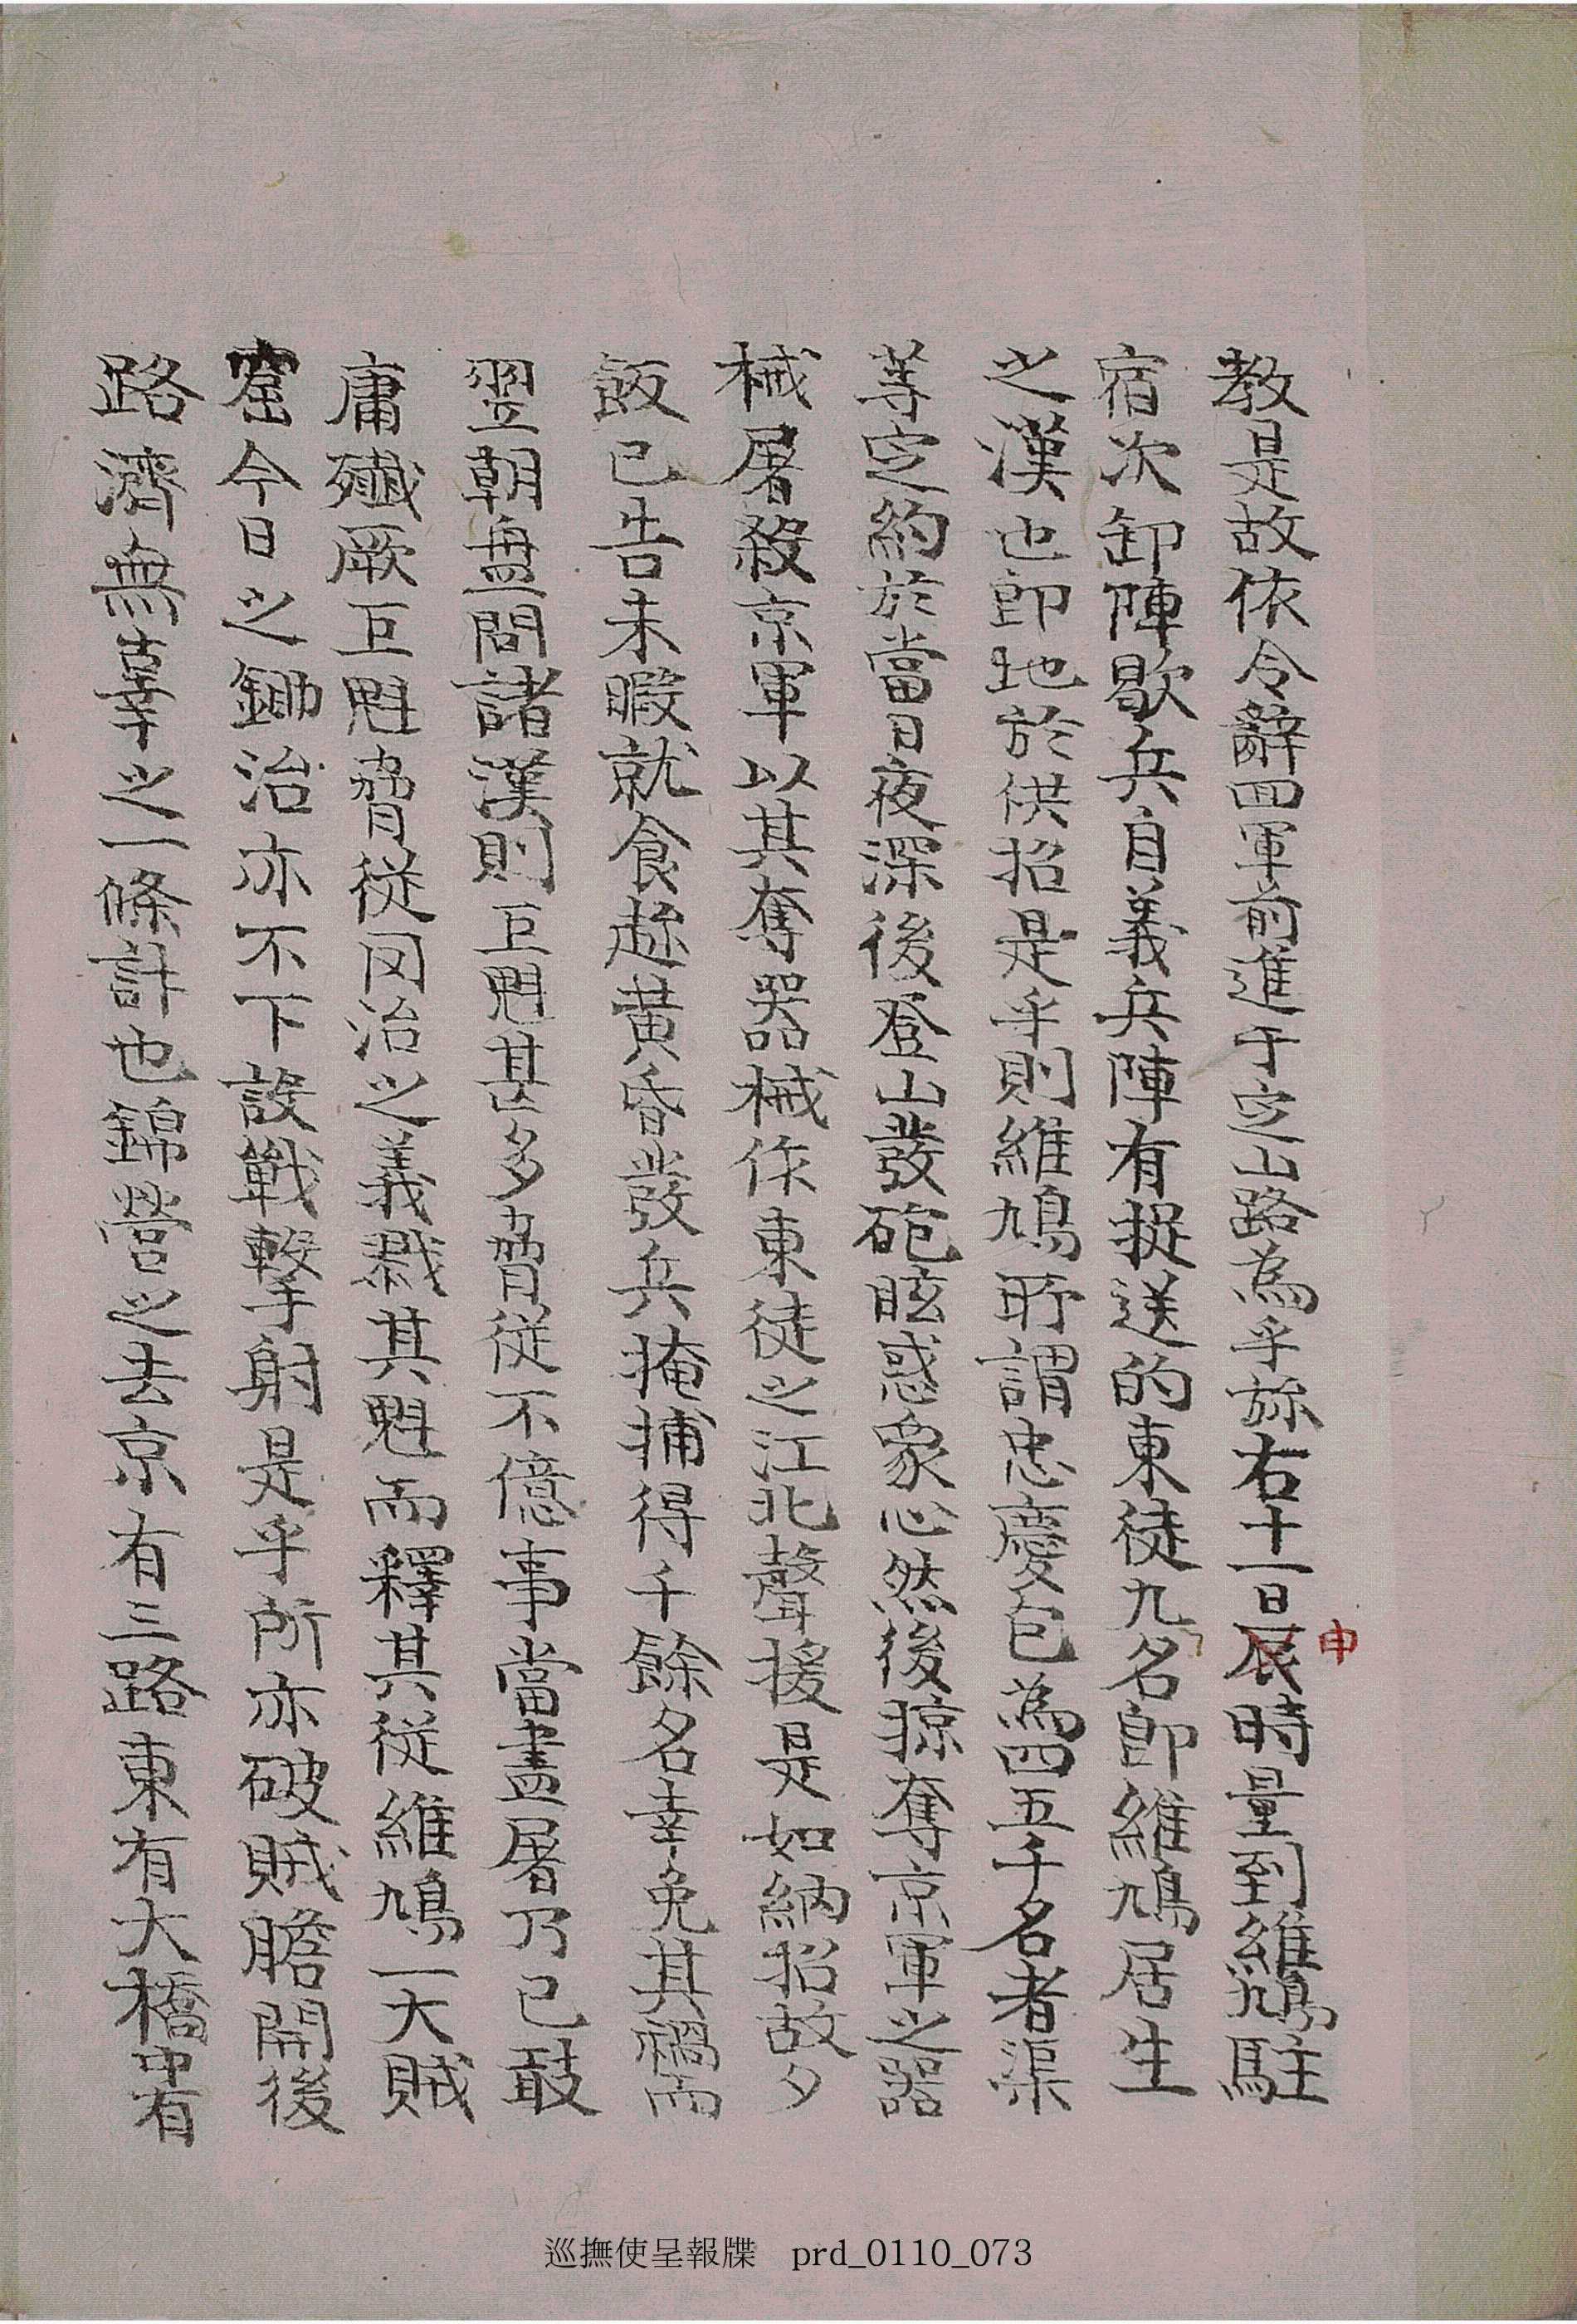 教是故依令辭四軍前進于定山路為乎旀右十一日辰時量到維鳩駐
申
宿次卸陣歇兵自義兵陣有捉送的東徒九名卽維鳩居生
之漢也卽地於供招是乎則維鳩所謂忠慶包為四五千名者渠
等定約於當日夜深後登山發砲眩惑衆心然後掠奪京軍之器
械屠殺京軍以其奪器械作東徒之江北聲援是如納招故夕
飯已告未暇就食趂黃昏發兵掩捕得千餘名幸免其禍而
翌朝盘問諸漢則巨魁甚多脅從不億事當盡屠乃已敢
庸殲厥巨魁脅從罔治之義戮其魁而釋其從維鳩一大賊
窟今日之鋤治亦不下設戰擊射是乎所亦破賊膽開後
路濟無辜之一條計也錦營之去京有三路東有大橋中有
巡撫使呈報牒 prd_0110_073